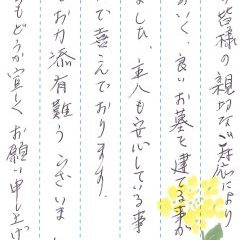 皆様の親切なご対応により
いく、良いお墓を建てる事が
ました。主人も安心している事
で喜んでおります。
お力添有難うございま
もどうか宜しくお願い申し上げ